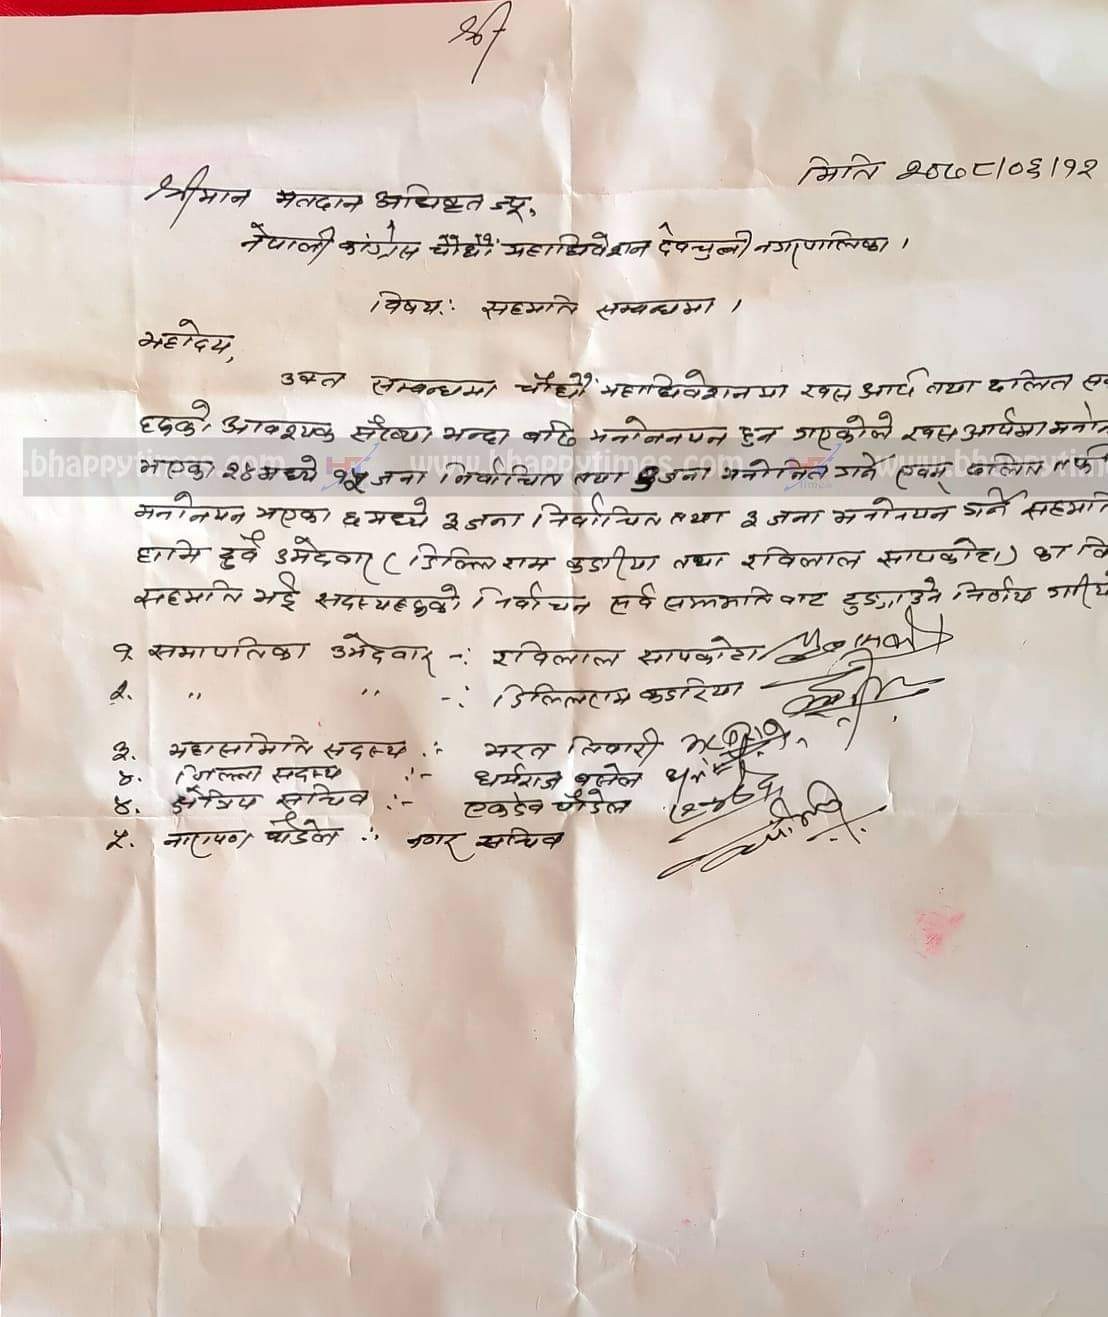 श्री
मिति २०७८/०६/१२
श्रीमान मतदान अधिकृत ज्यू,
नेपाली कांग्रेस चौधौं महाधिवेशन देवचुली नगरपालिका ।
विषय: सहमति सम्बन्धमा ।
महोदय,
उक्त सम्बन्धमा चौधौं महाधिवेशनमा खस आर्य तथा दलित
हरुको आवश्यक संख्या भन्दा बढि मनोननयन हुन गएकोले खस आर्यमा
www.bhappytimes.com
भएका २४ मध्ये १५ जना निर्वाचित तथा जना मनोनित गर्ने एवम् दलित तर्फ
मनोनयन भएका ६ मध्ये ३ जना निर्वाचित तथा ३ जना मनोनयन गर्ने सहमति
हामि दुवै उमेदवार ( डिल्लि राम कडरीया तथा रविलाल सापकोटा) का
सहमति भई सदस्यहरुको निर्वाचन सर्व सम्मतिबाट टुङ्ग्याउने निर्णय
१ सभापतिका उमेदवार -: रविलाल सापकोटा
२. " " -: डिलिलराम कडरिया
३. महासमिति सदस्य :- भरत तिवारी
४. जिल्ला सदस्य :- धर्मराज
४. क्षेत्रिय सचिव :- एकदेव पौडेल
५. नारायण पौडेल :- नगर सचिव